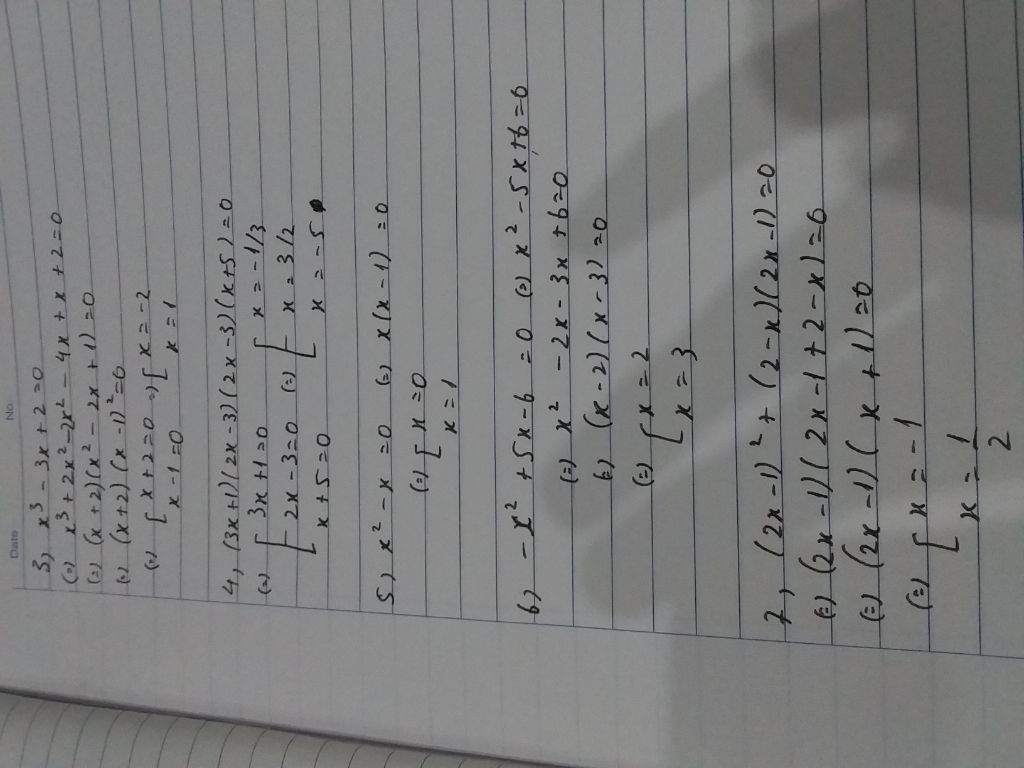 Date No.
3) x³ - 3x + 2 = 0
(=) x³ + 2x² - 2x² - 4x + x + 2 = 0
(=) (x + 2)(x² - 2x + 1) = 0
(=) (x + 2)(x - 1)² = 0
(=) [ x + 2 = 0 =) [ x = -2
x - 1 = 0 x = 1
4) (3x + 1)(2x - 3)(2x - 3)(x + 5) = 0
(=) [ 3x + 1 = 0 [ x = -1/3
2x - 3 = 0 (=) x = 3/2
x + 5 = 0 x = -5
5) x² - x = 0 (=) x(x - 1) = 0
(=) [ x = 0
x = 1
6) -x² + 5x - 6 = 0 (=) x² - 5x + 6 = 0
(=) x² - 2x - 3x + 6 = 0
(=) (x - 2)(x - 3) = 0
(=) [ x = 2
x = 3
7) (2x - 1)² + (2 - x)(2x - 1) = 0
(=) (2x - 1)(2x - 1 + 2 - x) = 0
(=) (2x - 1)(x + 1) = 0
(=) [ x = -1
x = 1/2